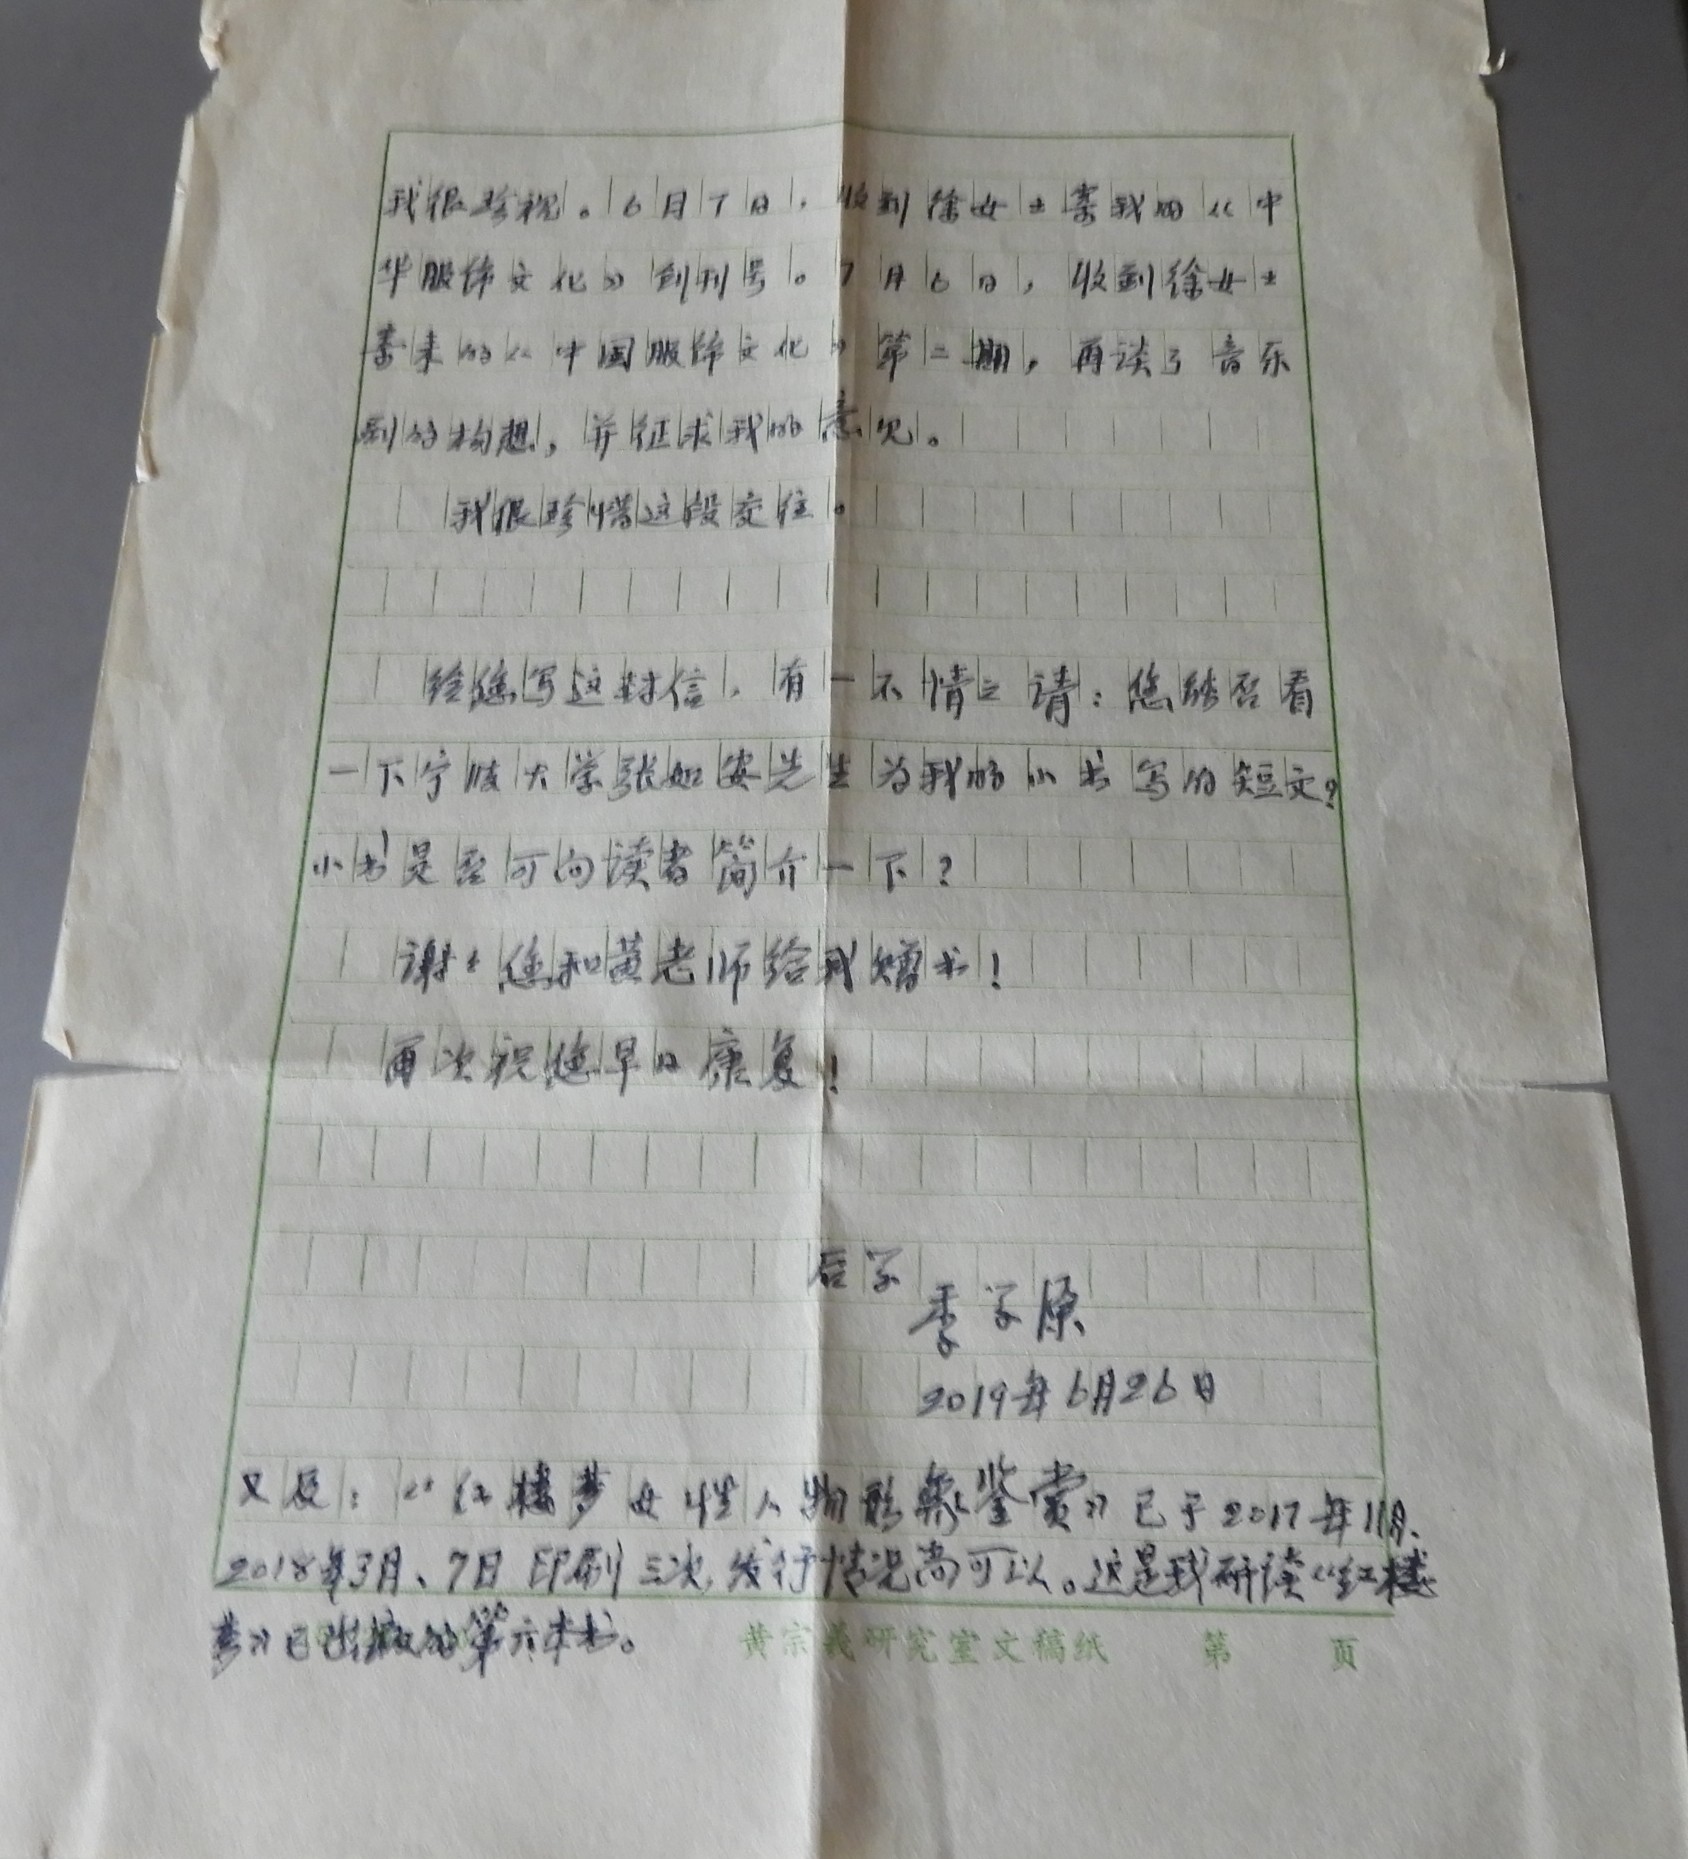 我很珍视。6月7日，收到徐女士寄我的《中
华服饰文化》创刊号。7月6日，收到徐女士
寄来的《中国服饰文化》第二期，再谈了音乐
剧的构想，并征求我的意见。
我很珍惜这段交往。
给您写这封信，有一不情之请：您能否看
一下宁波大学张如安先生为我的小书写的短文？
小书是否可向读者简介一下？
谢谢您和黄老师给我赠书！
再次祝您早日康复！
后学
季学原
2019年6月26日
又及：《红楼梦女性人物形象鉴赏》已于2017年11月、
2018年3月、7日印刷三次，发行情况尚可以。这是我研读《红楼
梦》已出版的第六本书。
黄宗羲研究室文稿纸 第 页